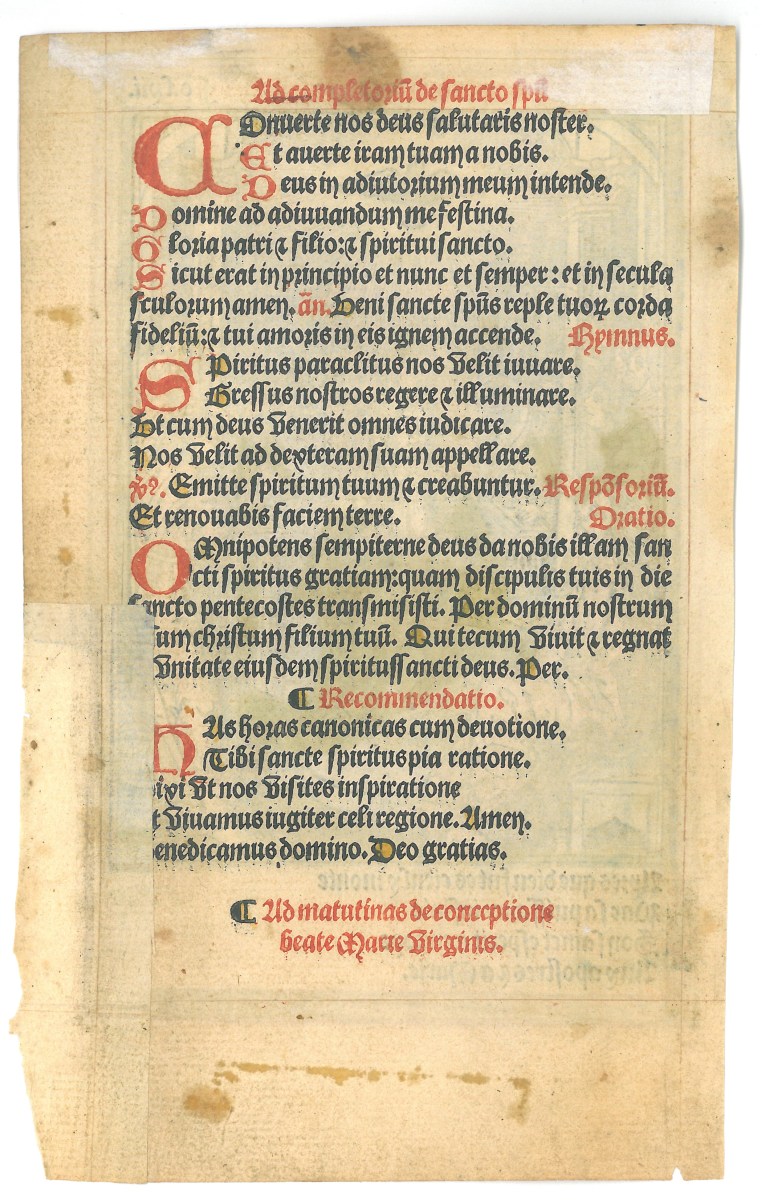 Ad completoriū de sancto spū
COnuerte nos deus salutaris noster.
Et auerte iram tuam a nobis.
Deus in adiutorium meum intende.
Domine ad adiuuandum me festina.
Gloria patri ⁊ filio: ⁊ spiritui sancto.
Sicut erat in principio et nunc et semper: et in secula
sculorum amen. añ. Veni sancte spūs reple tuoꝝ corda
fideliū: ⁊ tui amoris in eis ignem accende. Hymnus.
SPiritus paraclitus nos velit iuuare.
Gressus nostros regere ⁊ illuminare.
Vt cum deus venerit omnes iudicare.
Nos velit ad dexteram suam appellare.
℣. Emitte spiritum tuum ⁊ creabuntur. Respōsoriū.
Et renouabis faciem terre. Oratio.
OMnipotens sempiterne deus da nobis illam san
cti spiritus gratiam: quam discipulis tuis in die
sancto pentecostes transmisisti. Per dominū nostrum
sum christum filium tuū. Qui tecum viuit ⁊ regnat
vnitate eiusdem spiritussancti deus. Per.
¶ Recommendatio.
HAs horas canonicas cum deuotione.
Tibi sancte spiritus pia ratione.
ixi vt nos visites inspiratione
t viuamus iugiter celi regione. Amen.
enedicamus domino. Deo gratias.
¶ Ad matutinas de conceptione
beate Marie virginis.